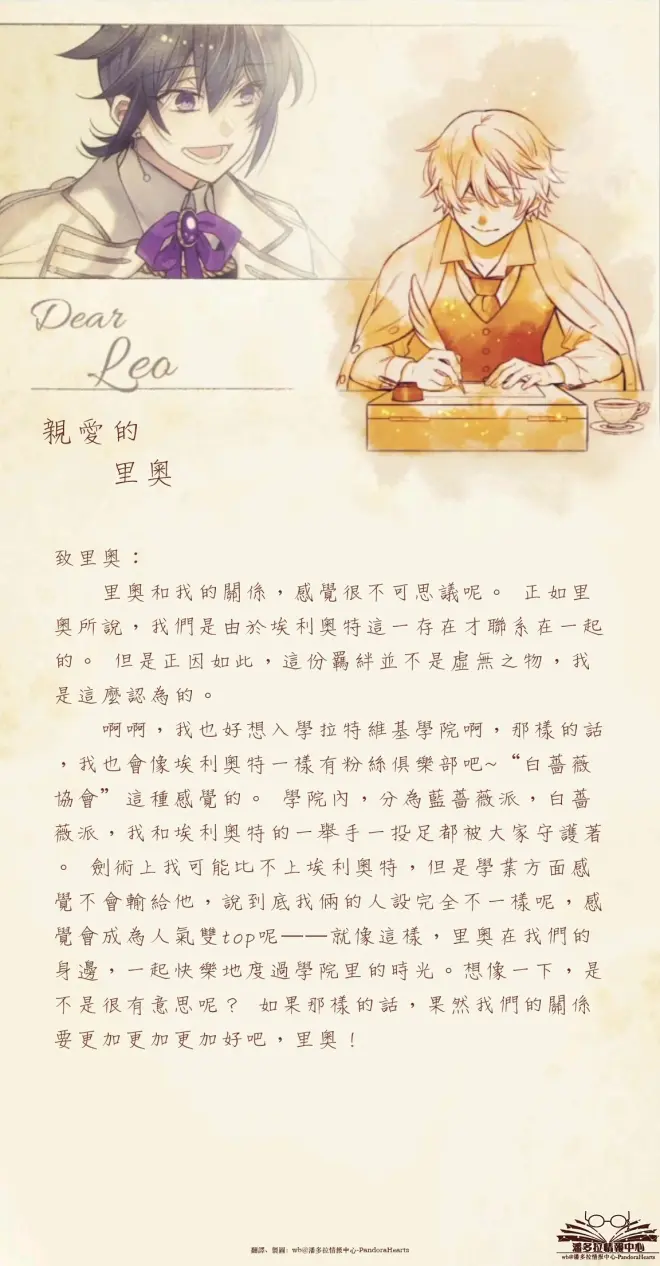 Dear
Leo
親愛的
里奧
致里奧：
里奧和我的關係，感覺很不可思議呢。 正如里
奧所說，我們是由於埃利奧特這一存在才聯系在一起
的。 但是正因如此，這份羈絆並不是虛無之物，我
是這麼認為的。
啊啊，我也好想入學拉特維基學院啊，那樣的話
，我也會像埃利奧特一樣有粉絲俱樂部吧~“白薔薇
協會”這種感覺的。 學院內，分為藍薔薇派，白薔
薇派，我和埃利奧特的一舉手一投足都被大家守護著
。 劍術上我可能比不上埃利奧特，但是學業方面感
覺不會輸給他，說到底我倆的人設完全不一樣呢，感
覺會成為人氣雙top呢——就像這樣，里奧在我們的
身邊，一起快樂地度過學院里的時光。想像一下，是
不是很有意思呢？ 如果那樣的話，果然我們的關係
要更加更加更加好吧，里奧！
潘多拉情報中心
wb@潘多拉情报中心-PandoraHearts
翻譯、製圖：wb@潘多拉情报中心-PandoraHearts